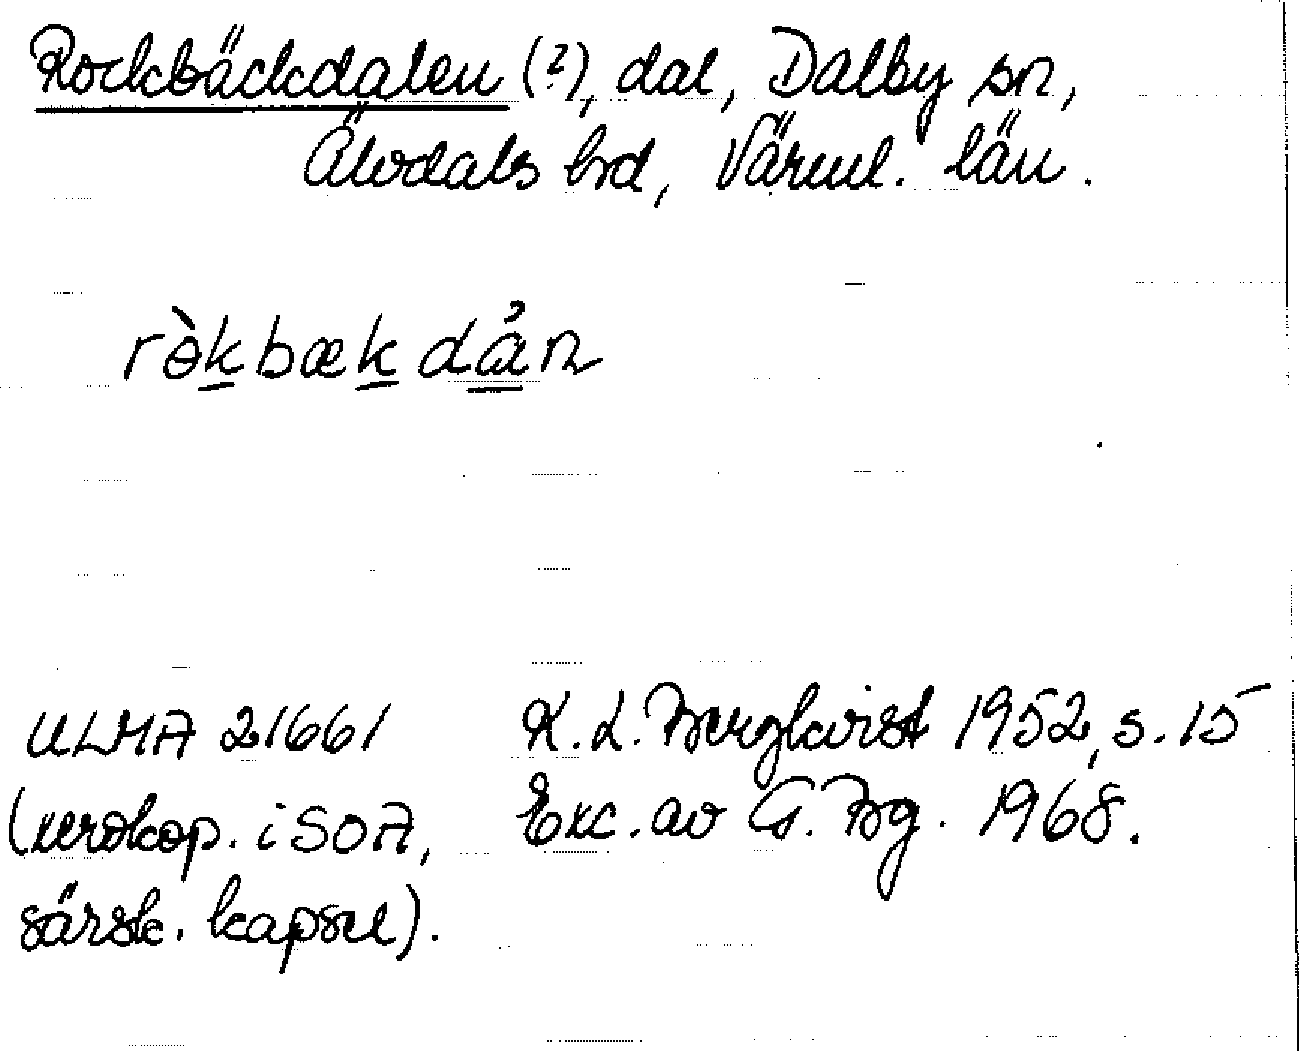 Rockbäckdalen (?), dal, Dalby sn,
Älvdals hd, Värml. län.
rə̀kbækdå̉n
ULMA 21661 K. L. Bergkvist 1952, s. 15
(xerokop. i SOA, Exc. av G. Bg. 1968.
särsk. kapsel).